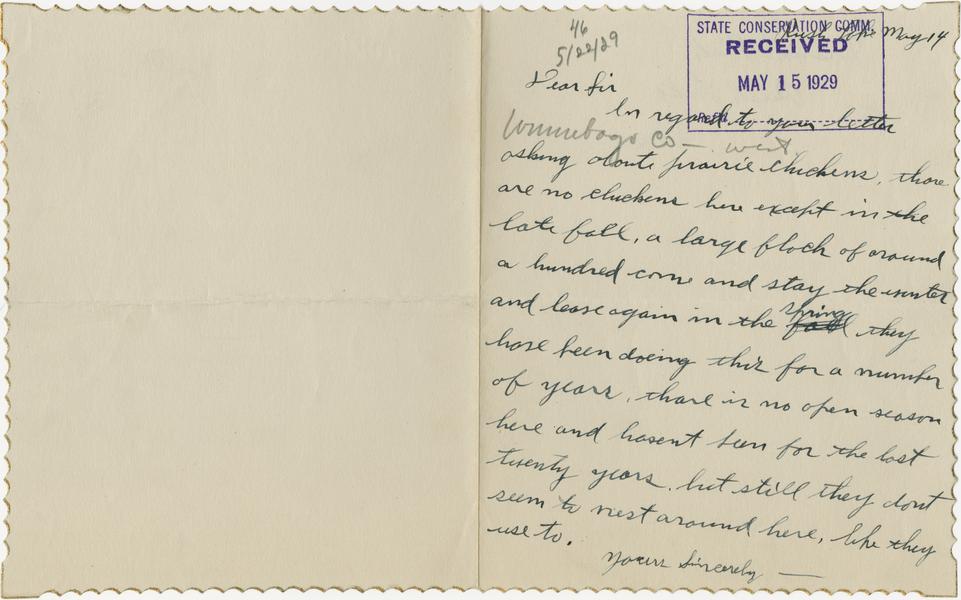 46
5/22/29
STATE CONSERVATION COMM.
RECEIVED
MAY 15 1929
Rush Lake May 14
Dear Sir
In regard to your letter
Winnebago Co — west
asking aloute prairie chickens, thare
are no chickens here except in the
late fall, a large flock of around
a hundred come and stay the winter
and leave again in the spring fall they
have been doeing this for a number
of years, thare is no open season
here and hasent been for the last
twenty years, but still they dont
seem to nest around here, like they
use to.
Yours Sincerely —